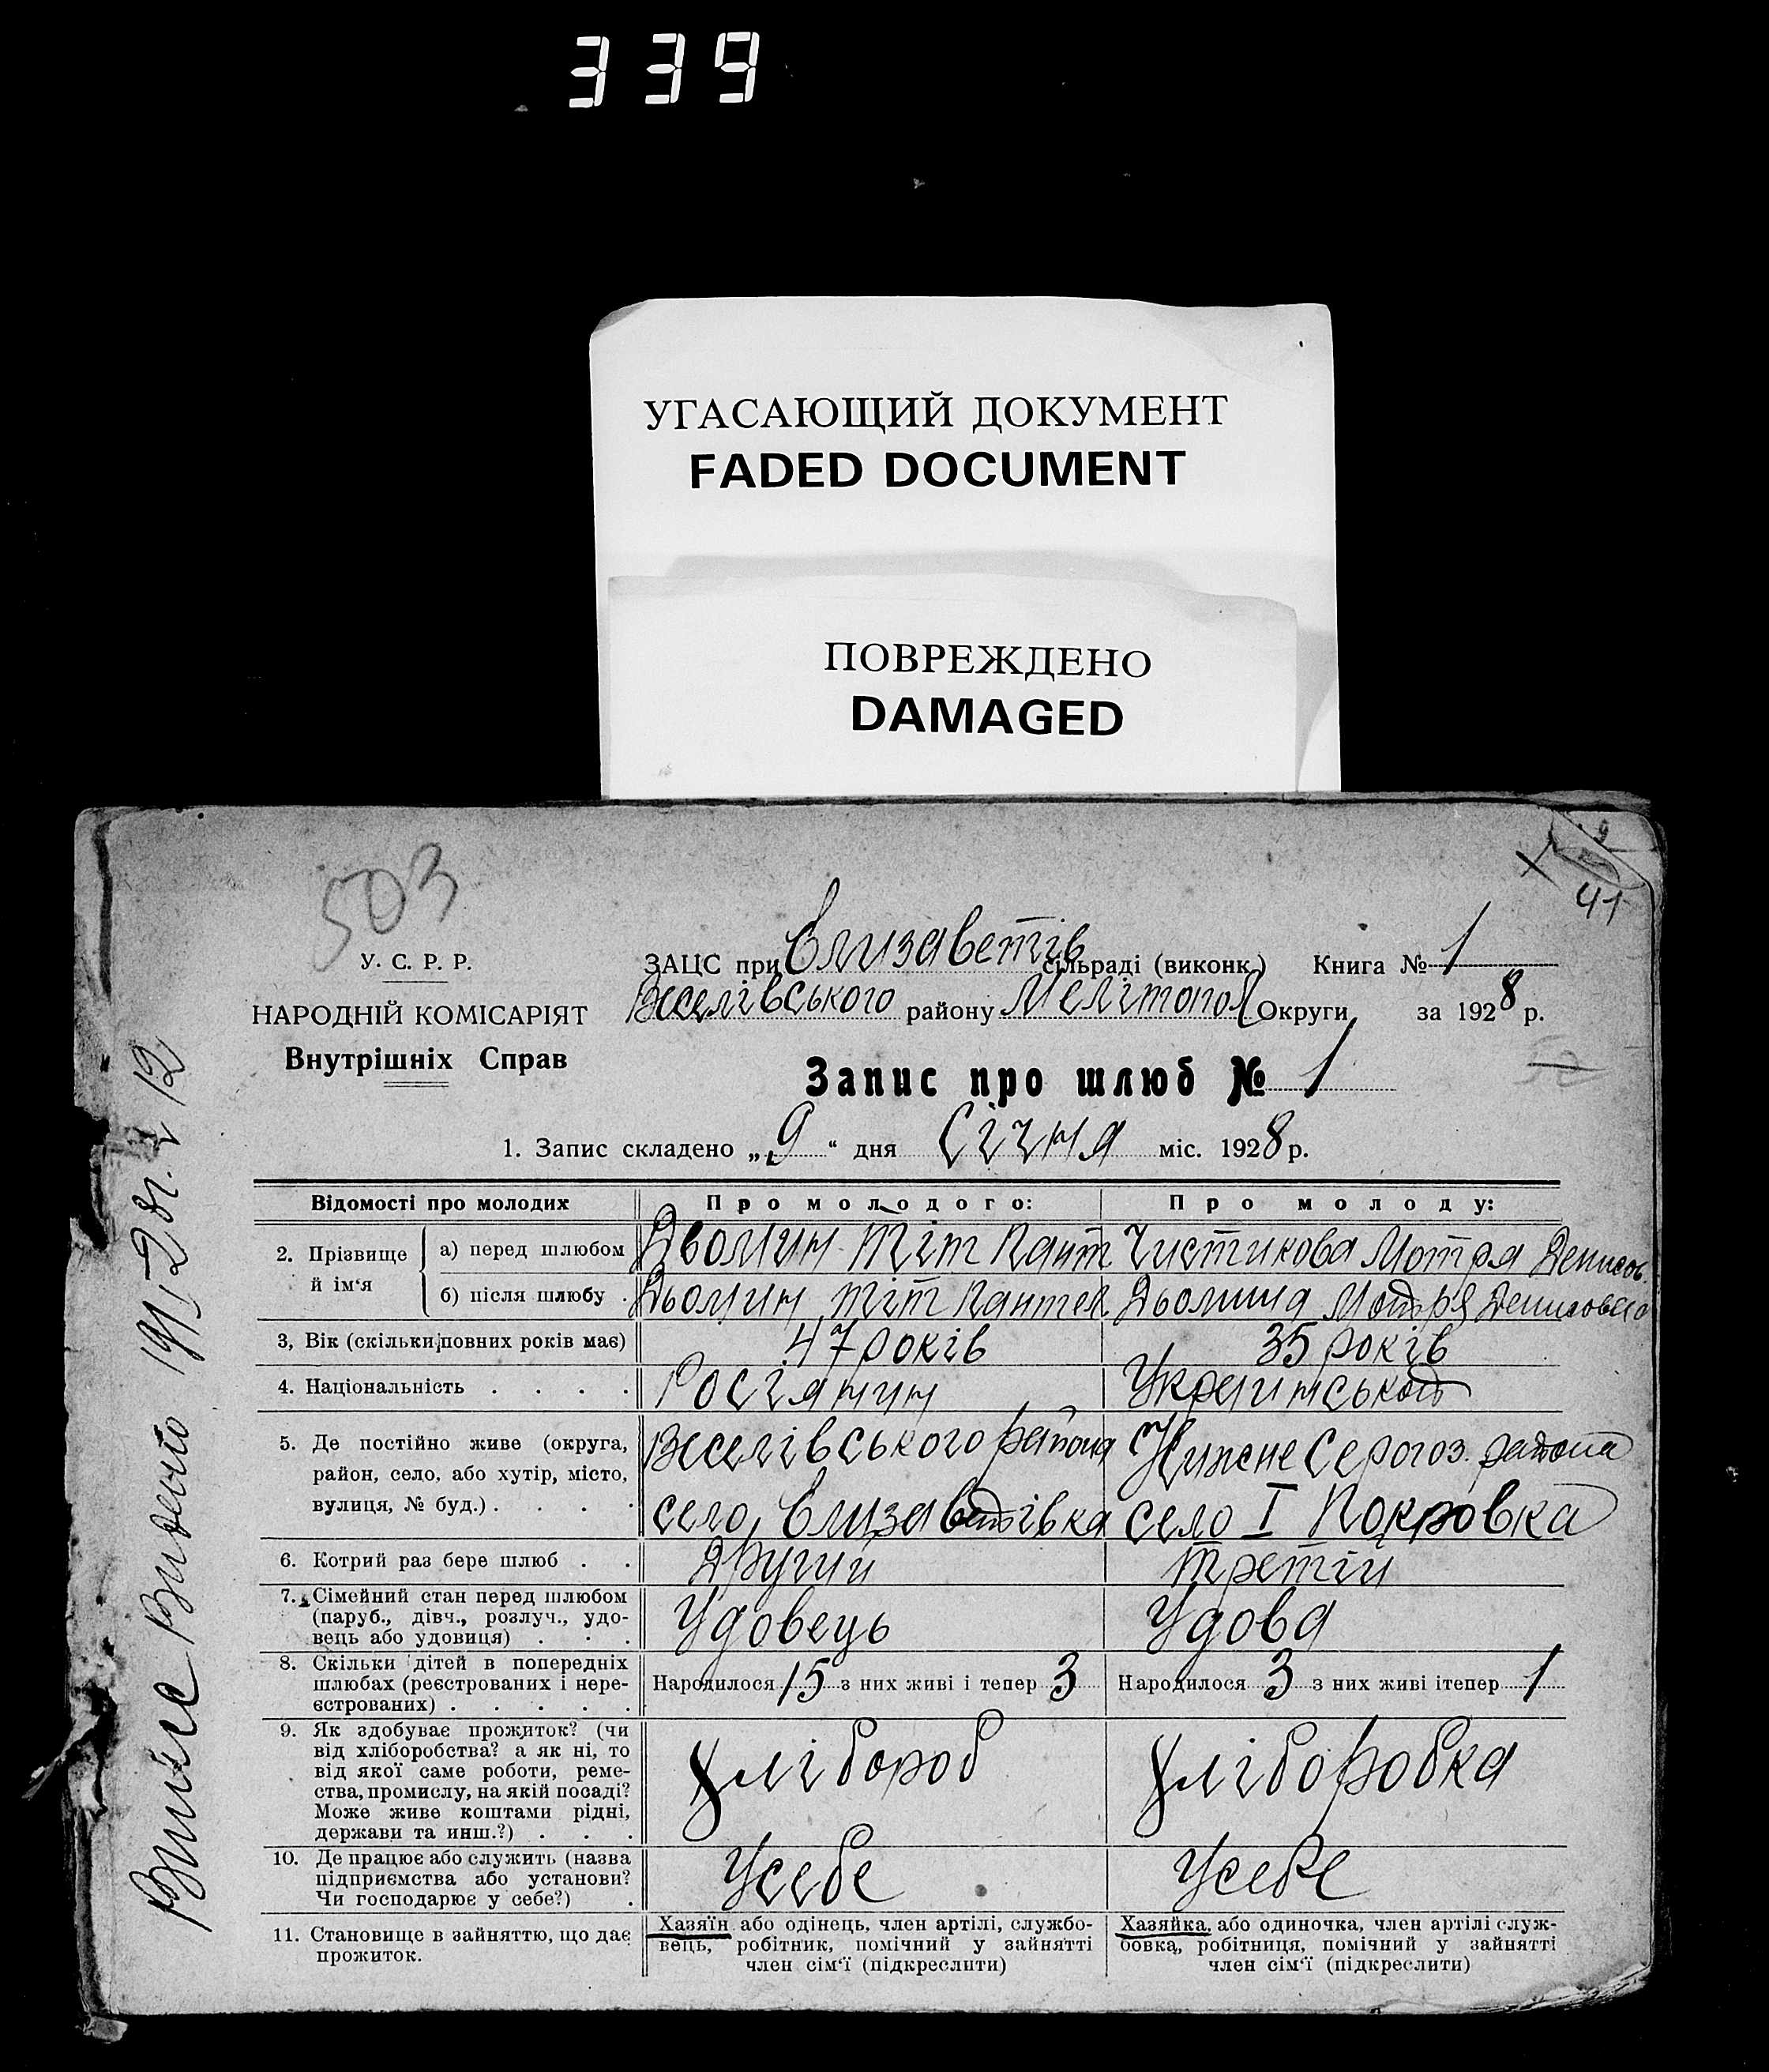 339
УГАСАЮЩИЙ ДОКУМЕНТ
FADED DOCUMENT
ПОВРЕЖДЕНО
DAMAGED
503
41
У. С. Р. Р.
НАРОДНІЙ КОМІСАРІЯТ
Внутрішніх Справ
ЗАЦС при Єлизаветів сільраді (виконк.) Книга № 1
Веселівського району Мелітопол Округи за 1928 р.
52
Запис про шлюб № 1
1. Запис складено „9“ дня Січня міс. 1928 р.
Відомості про молодих Про молодого: Про молоду:
2. Прізвище й ім‘я
а) перед шлюбом Дьомин Тіт Пант Чистикова Мотря Денисов.
б) після шлюбу . Дьомин Тіт Пантел Дьомина Мотря Денисовна
3, Вік (скільки повних років має) 47 років 35 років
4. Національність . . . . Росіянин Украинської
5. Де постійно живе (округа,
район, село, або хутір, місто,
вулиця, № буд.) . . . .
Веселівського района
село, Єлизаветівка
Нижне Серогоз. района
село I Покровка
6. Котрий раз бере шлюб . . Другий Третій
7. Сімейний стан перед шлюбом
(паруб., дівч., розлуч., удо-
вець або удовиця) . . .
Удовець
Удова
8. Скільки дітей в попередніх
шлюбах (реєстрованих і нере-
єстрованих) . . . . .
Народилося 15 з них живі і тепер 3
Народилося 3 з них живі ітепер 1
9. Як здобуває прожиток? (чи
від хліборобства? а як ні, то
від якої саме роботи, реме-
ства, промислу, на якій посаді?
Може живе коштами рідні,
держави та инш.?) . . .
Хлібороб
Хліборобка
10. Де працює або служить (назва
підприємства або установи?
Чи господарює у себе?) .
Усебе
Усебе
11. Становище в зайняттю, що дає
прожиток.
Хазяїн або одінець, член артілі, службо-
вець, робітник, помічний у зайнятті
член сім‘ї (підкреслити)
Хазяйка, або одиночка, член артілі служ-
бовка, робітниця, помічний у зайнятті
член сім‘ї (підкреслити)